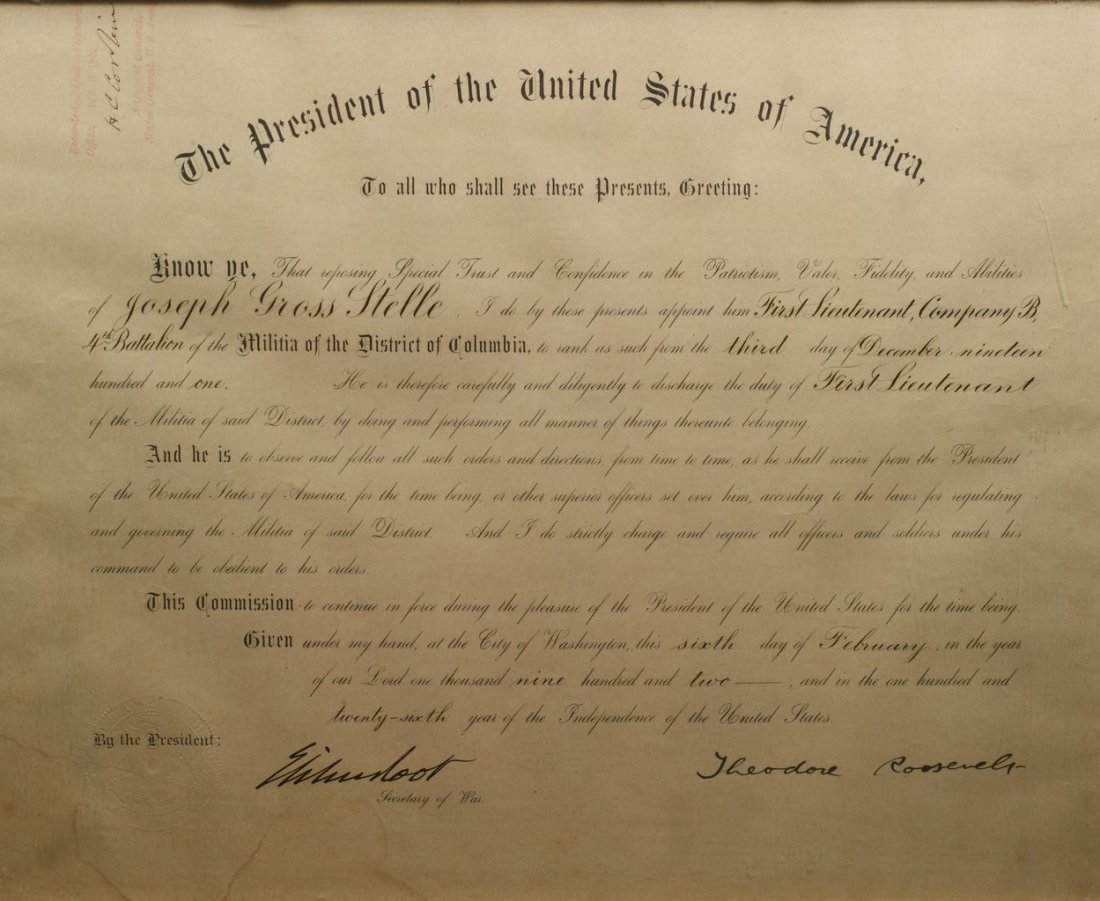 The President of the United States of America,
To all who shall see these Presents, Greeting:
Know ye, That reposing Special Trust and Confidence in the Patriotism, Valor, Fidelity, and Abilities
of Joseph Gross Stelle, I do by these presents appoint him First Lieutenant, Company B,
4th Battalion of the Militia of the District of Columbia, to rank as such from the third day of December nineteen
hundred and one. He is therefore carefully and diligently to discharge the duty of First Lieutenant
of the Militia of said District, by doing and performing all manner of things thereunto belonging.
And he is to observe and follow all such orders and directions, from time to time, as he shall receive from the President
of the United States of America, for the time being, or other superior officers set over him, according to the laws for regulating
and governing the Militia of said District. And I do strictly charge and require all officers and soldiers under his
command to be obedient to his orders.
This Commission to continue in force during the pleasure of the President of the United States for the time being.
Given under my hand, at the City of Washington, this sixth day of February, in the year
of our Lord one thousand nine hundred and two, and in the one hundred and
twenty-sixth year of the Independence of the United States.
By the President:
Elihu Root
Secretary of War.
Theodore Roosevelt
H C Corbin